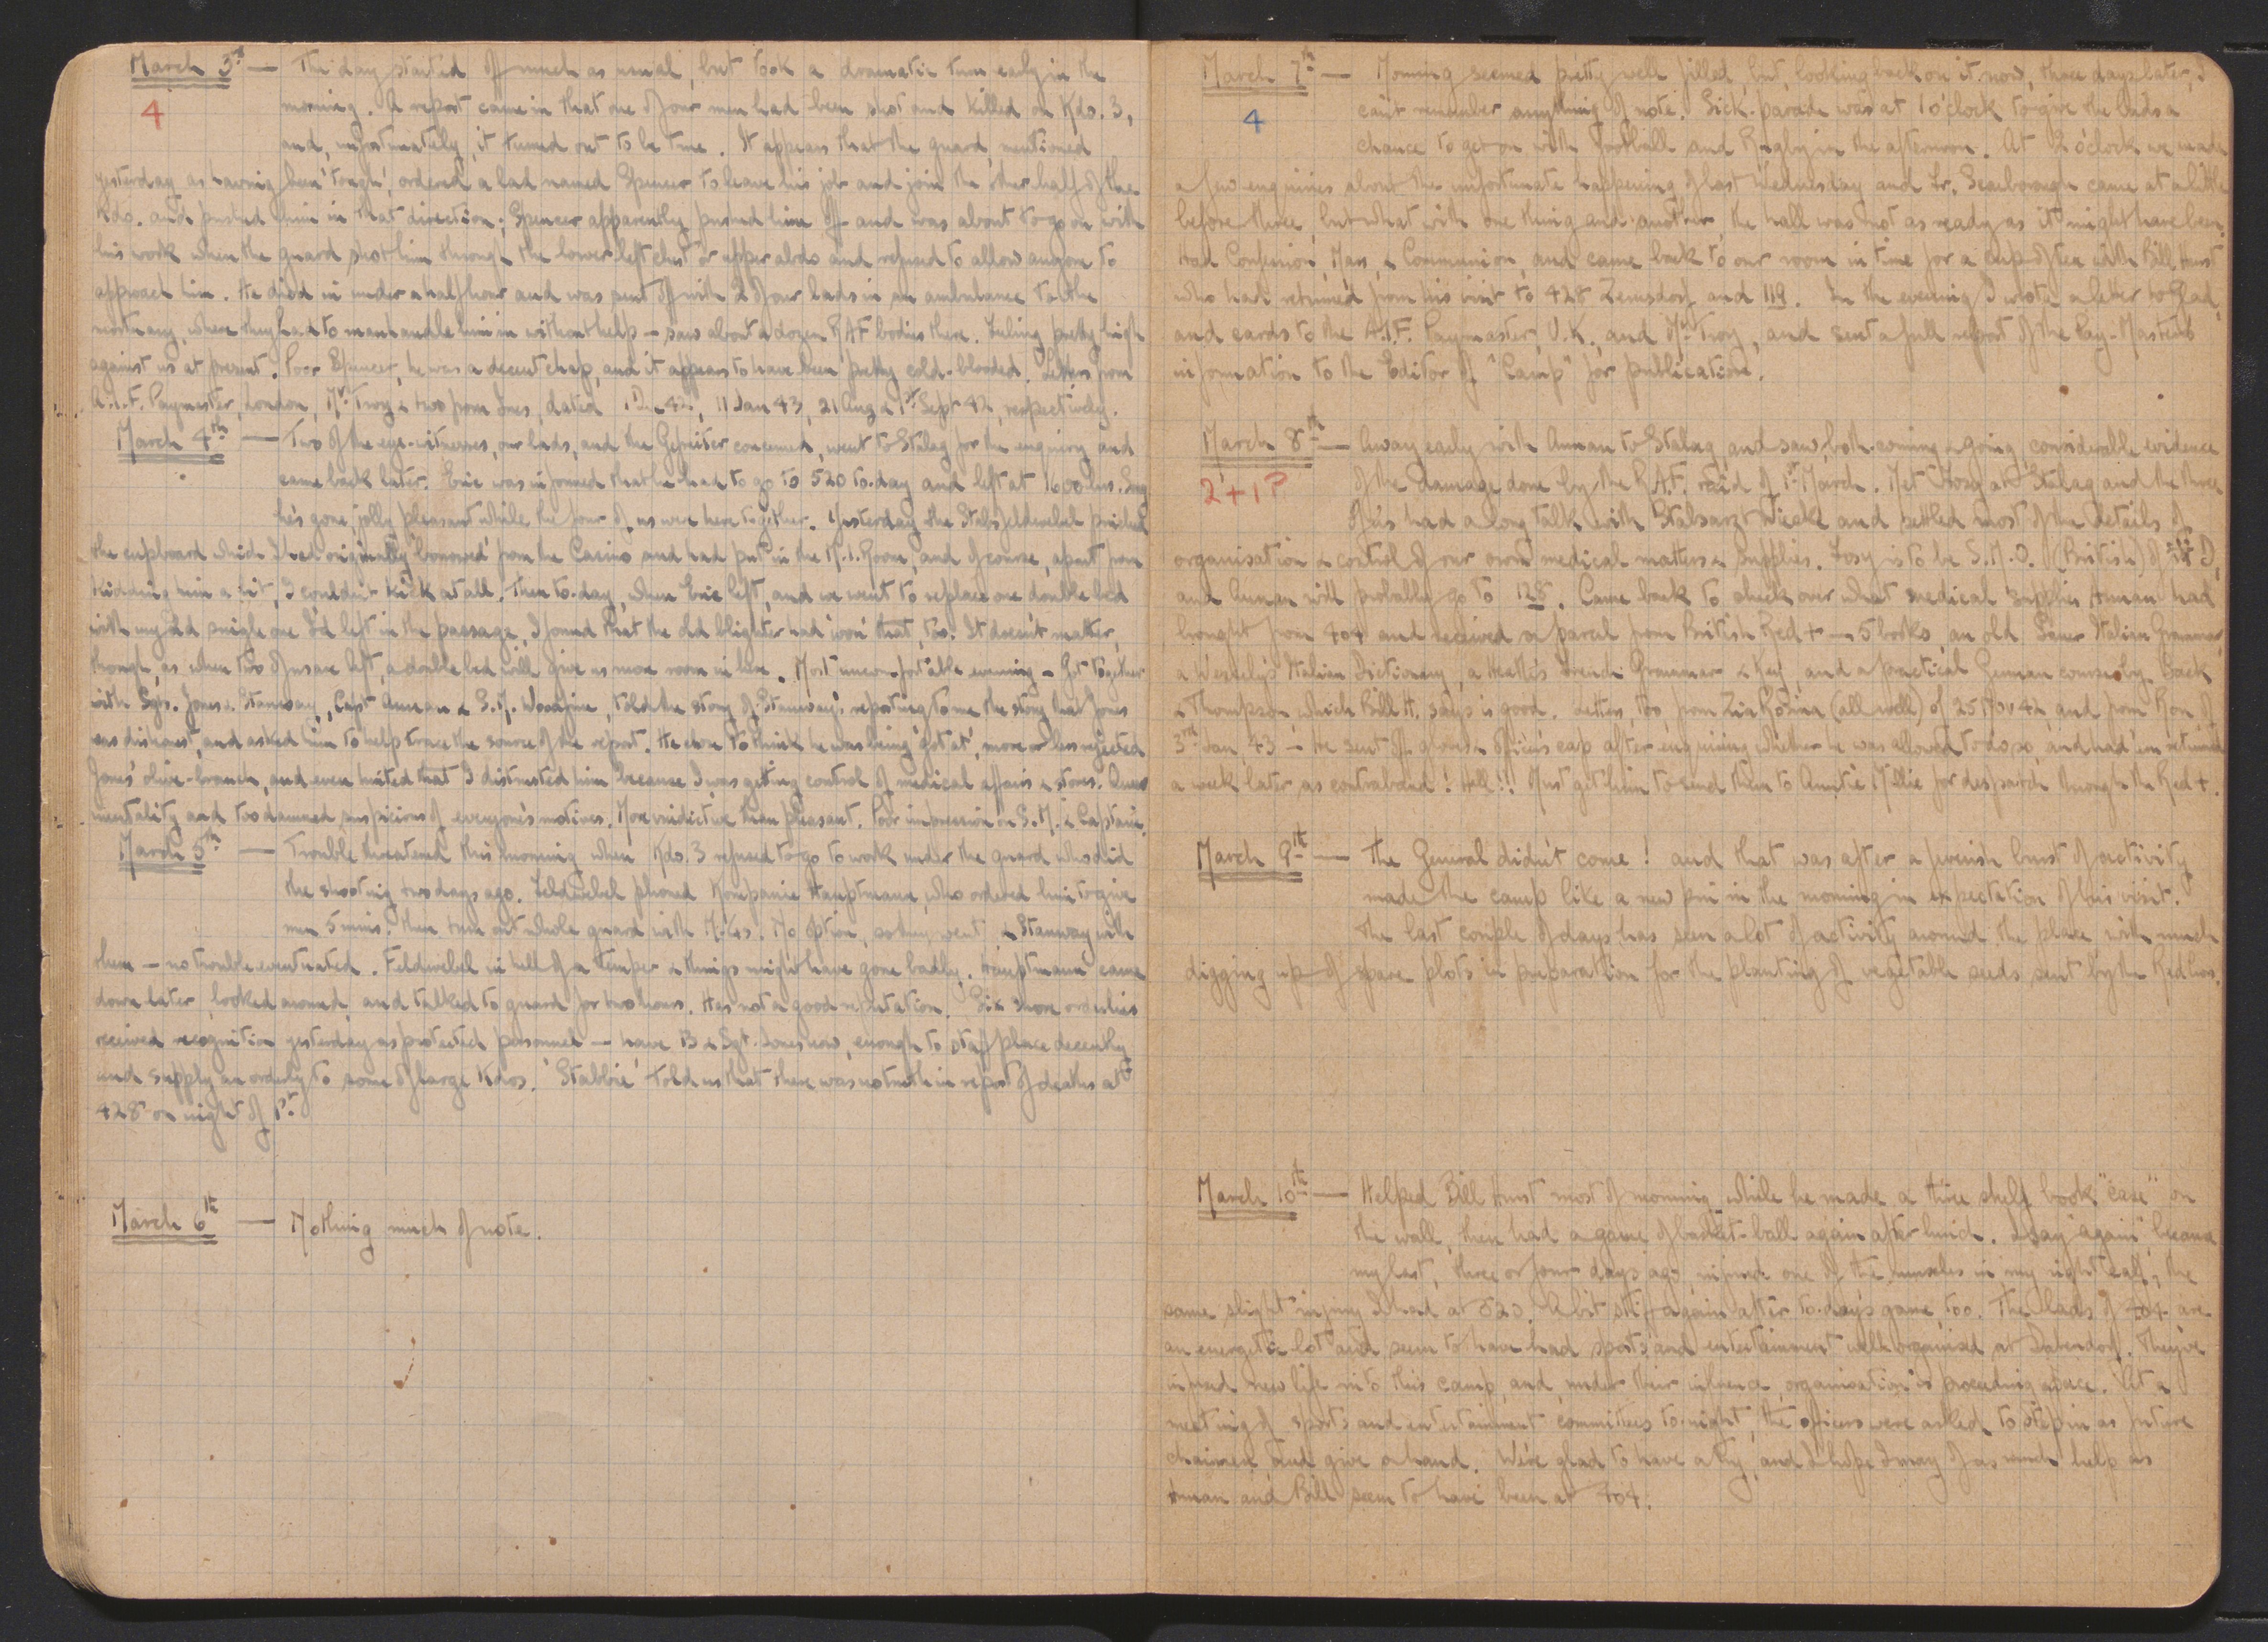 March 3rd — The day started off much as usual, but took a dramatic turn early in the
4
morning. A report came in that one of our men had been shot and killed on Kdo. 3,
and, unfortunately, it turned out to be true. It appears that the guard, mentioned
yesterday as having been 'tough', ordered a lad named Spencer to leave his job and join the other half of the
Kdo. and pushed him in that direction; Spencer apparently pushed him off and was about to go on with
his work when the guard shot him through the lower left chest or upper abdo and refused to allow anyone to
approach him. He died in under a half hour and was sent off with 2 of our lads in an ambulance to the
mortuary, where they had to manhandle him in without help – saw about a dozen RAF bodies there. Feeling pretty high
against us at present. Poor Spencer, he was a decent chap, and it appears to have been pretty cold-blooded. Letters from
A.I.F. Paymaster, London, Mrs Troy & two from Ines, dated 1 Dec 42, 11 Jan 43, 21 Aug & 1st Sept 42, respectively.
March 4th — Two of the eye-witnesses, our lads, and the Gefreiter concerned, went to Stalag for the enquiry and
came back later. Eric was informed that he had to go to 520 to-day and left at 1600 hrs. Sorry
he's gone, jolly pleasant while the four of us were here together. Yesterday the Stabsfeldwebel pinched
the cupboard which I had originally 'borrowed' from the Casino and had put in the M.I. Room, and of course, apart from
kidding him a bit, I couldn't kick at all. Then to-day, when Eric left, and we went to replace one double bed
with my old single one I'd left in the passage, I found that the old blighter had 'won' that, too. It doesn't matter,
though, as when two of us are left, a double bed will give us more room in here. Most uncomfortable evening – Got together
with Sgts. Jones & Stanway, Capt Annan & S.M. Woodjine, told the story of Stanway's reporting to me the story that Jones
was dishonest, and asked him to help trace the source of the report. He chose to think he was being 'got at', more or less rejected
Jones' olive-branch, and even hinted that I distrusted him because I was getting control of medical affairs & stores. Queer
mentality and too damned suspicious of everyone's motives. More vindictive than pleasant. Poor impression on S.M. & Captain.
March 5th — Trouble threatened this morning when Kdo. 3 refused to go to work under the guard who did
the shooting two days ago. Feldwebel phoned Kompanie Hauptmann, who ordered him to give
men 5 mins. then turn out whole guard with M.Gs. No option, so they went & Stanway with
them – no trouble eventuated. Feldwebel in hell of a temper & things might have gone badly. Hauptmann came
down later, looked around, and talked to guard for two hours. Has not a good reputation. Six more orderlies
received recognition yesterday as protected personnel – have 13 & Sgt. Jones now, enough to staff place decently
and supply an orderly to some of large Kdos. 'Stabbie' told us that there was no truth in report of deaths at
428 on night of 1st.
March 6th — Nothing much of note.
March 7th — Morning seemed pretty well filled, but, looking back on it now, three days later, I
4
can't remember anything of note. Sick-parade was at 1 o'clock to give the lads a
chance to get on with Football and Rugby in the afternoon. At 2 o'clock we made
a few enquiries about the unfortunate happening of last Wednesday and Fr. Scarborough came at a little
before three, but what with one thing and another, the hall was not as ready as it might have been.
Had Confession, Mass, & Communion, and came back to our room in time for a cup of tea with Bill Hurst
who had returned from his visit to 428 Zeuesdorf and 119. In the evening I wrote a letter to Glad,
and cards to the A.I.F. Paymaster, U.K., and Mrs Troy, and sent a full report of the Pay-Master's
information to the Editor of "Camp" for publication.
March 8th — Away early with Annan to Stalag and saw, both coming & going, considerable evidence
2+1?
of the damage done by the R.A.F. raid of 1st March. Met Foxy at Stalag and the three
of us had a long talk with Stabsarzt Wiecke and settled most of the details of
organisation & control of our own medical matters & supplies. Foxy is to be S.M.O. (British) of III D,
and Annan will probably go to 128. Came back to check over what medical supplies Annan had
brought from 404 and received a parcel from British Red + – 5 books, an old Sauer Italian Grammar,
a Wessely's Italian Dictionary, a Heath's French Grammar & Key, and a practical German course by Back
& Thompson which Bill H. says is good. Letters, too, from Zia Rosina (all well) of 25 Nov 42, and from Ron of
3rd Jan 43 – He sent off gloves & officer's cap after enquiring whether he was allowed to do so, and had 'em returned
a week later as contraband! Hell!! Must get him to send them to Auntie Millie for despatch through the Red +.
March 9th — The General didn't come! and that was after a feverish burst of activity
made the camp like a new pin in the morning in expectation of his visit.
The last couple of days has seen a lot of activity around the place with much
digging up of spare plots in preparation for the planting of vegetable seeds sent by the Red Cross.
March 10th — Helped Bill Hurst most of morning while he made a three shelf book "case" on
the wall, then had a game of basket-ball again after lunch. I say 'again' because
my last, three or four days ago, injured one of the muscles in my right calf, the
same slight injury I had at 520. A bit stiff again after to-day's game, too. The lads of 404 are
an energetic lot and seem to have had sports and entertainment well organised at Dabendorf. They've
infused new life into this camp and, under their influence, organisation is proceeding apace. At a
meeting of sports and entertainment committees to-night, the officers were asked to step in as future
chairmen and give a hand. We're glad to have a try, and I hope I may be of as much help as
Annan and Bill seem to have been at 404.